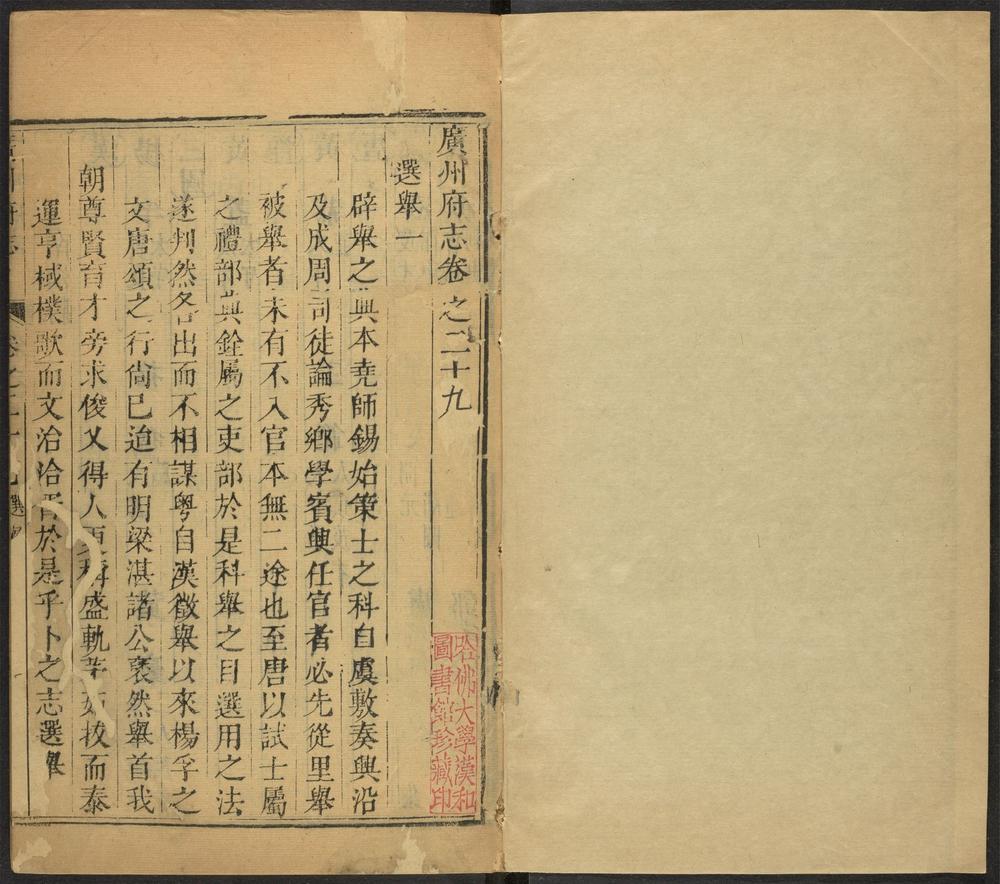 廣州府志卷之二十九
選舉一
辟舉之典本堯師錫始策士之科自虞敷奏興沿
及成周司徒論秀鄉學賓興任官者必先從里舉
被舉者未有不入官本無二途也至唐以試士屬
之禮部與銓屬之吏部於是科舉之目選用之法
遂判然各出而不相謀粵自漢徵舉以來楊孚之
文唐頌之行尚已迨有明梁湛諸公裒然舉首我
朝尊賢育才旁求俊乂得人更 盛軌茅茹拔而泰
運亨棫樸歌而文治洽胥於是乎卜之志選舉
廣州府志
卷之二十九 選
哈佛大學漢和
圖書館珍藏印